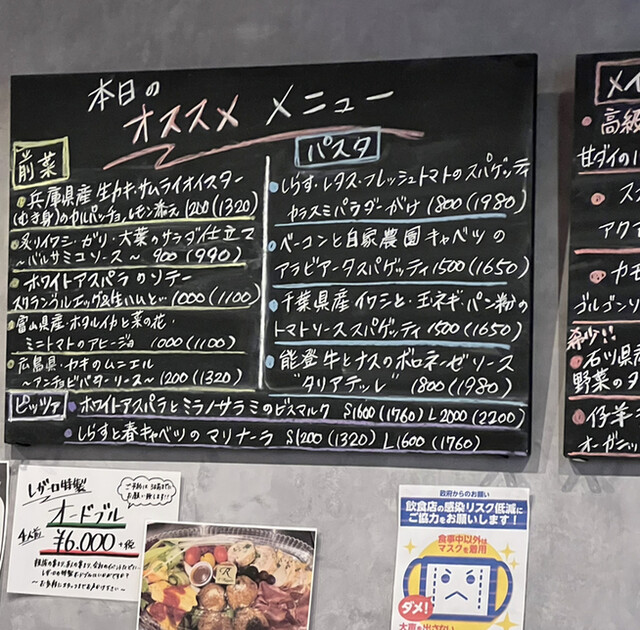 本日の
オススメ メニュー
前菜
・兵庫県産 生カキ・サムライオイスター
(むき身)のカルパッチョ、レモン添え 1200(1320)
・炙りイワシ・ガリ・大葉のサラダ仕立て
〜バルサミコソース〜 900(990)
・ホワイトアスパラのソテー
スクランブルエッグ&生ハムと… 1000(1100)
・富山県産・ホタルイカと菜の花・
ミニトマトのアヒージョ 1000(1100)
・広島県・カキのムニエル
〜アンチョビバターソース〜 1200(1320)
パスタ
・しらす・レタス・フレッシュトマトのスパゲッティ
カラスミパウダーがけ 1800(1980)
・ベーコンと自家農園キャベツの
アラビアータスパゲッティ 1500(1650)
・千葉県産イワシと・玉ネギ・パン粉の
トマトソーススパゲッティ 1500(1650)
・能登牛とナスのボロネーゼソース
"タリアテッレ" 1800(1980)
ピッツァ
・ホワイトアスパラとミラノサラミのビスマルク S1600(1760) L2000(2200)
・しらすと春キャベツのマリナーラ S1200(1320) L1600(1760)
メイ
・高級
甘ダイの
・ス
アクア
・カモ
ゴルゴンゾ
希少!!
・石川県
野菜の
・仔羊
オーガニッ
レガーロ特製
オードブル
4人前
¥6.000+税
ご予約は3日前までに
お願い致します!!
政府からのお願い
飲食店の感染リスク低減に
ご協力をお願いします!
食事中以外は
マスクを着用
ダメ!
大声を出さない